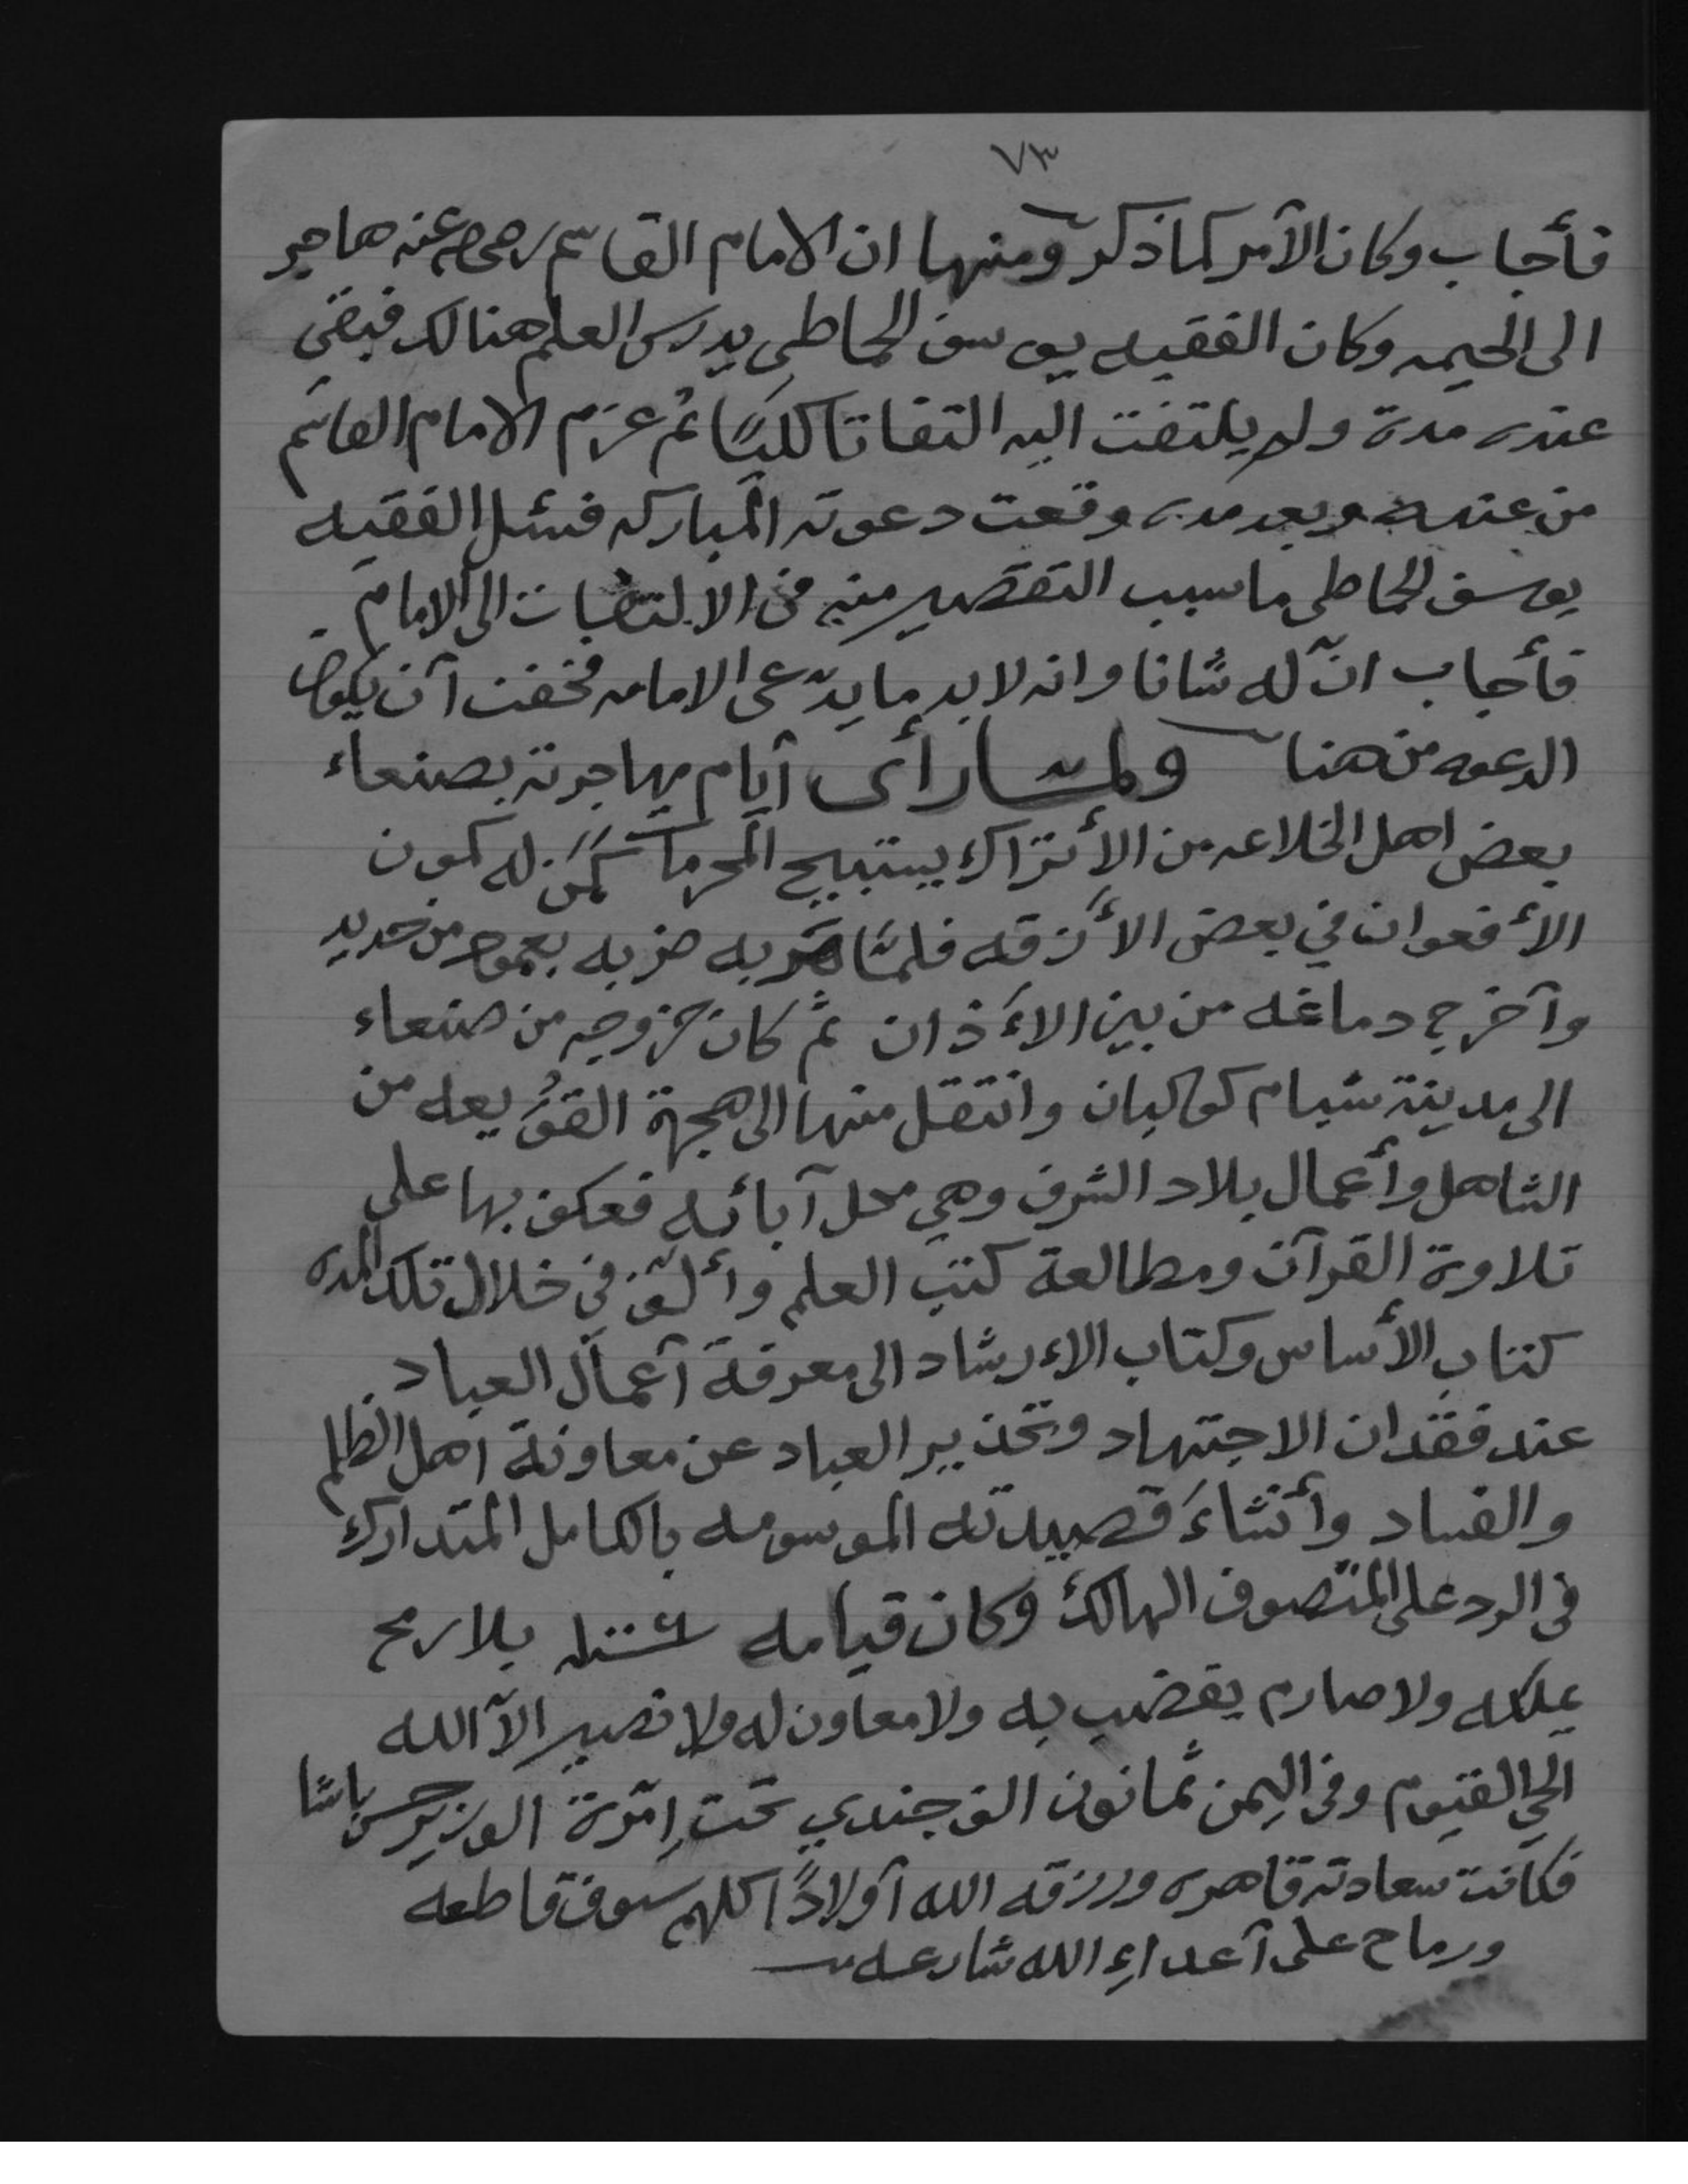 ٧٣
فأجاب وكان الأمر كما ذكر ومنها ان الامام القاسم رضي عنه هاجر
الى الحيمه وكان الفقيه يوسف الحماطي يدرس العلم هنالك فبقي
عنده مدة ولم يلتفت اليه التفاتا كليًا ثم عزم الامام القاسم
من عنده وبعد مده وقعت دعوته المباركه فسئل الفقيه
يوسف الحماطي ما سبب التقصير منه في الالتفات الى الامام
فأجاب انّ له شانا وانه لا بد ما يدّعى الامامه فخفت أن يكون
الدعوه من هنا ولما رأى أيام مهاجرته بصنعاء
بعض اهل الخلاعه من الأتراك يستبيح المحرمات كَمَن له كمون
الأفعوان في بعض الأزقه فلمّا مَرّ به ضربه بعمود من حديد
وأخرج دماغه من بين الأذان ثم كان خروجه من صنعاء
الى مدينة شبام كوكبان وانتقل منها الى هجرة القُوَيعه من
الشاهل وأعمال بلاد الشرف وهي محل آبائه فعكف بها على
تلاوة القرآن ومطالعة كتب العلم وألّف في خلال تلك المده
كتاب الأساس وكتاب الاءرشاد الى معرفة أعمال العباد
عند فقدان الاجتهاد وتحذير العباد عن معاونة اهل الظلم
والفساد وأنشاءَ قصيدته الموسومه بالكامل المتدارك
في الرد على المتصوف الهالك وكان قيامه بلا رمح
يملكه ولا صارم يقضب به ولا معاون له ولا نصير الاّ الله
الحي القيوم وفي اليمن ثمانون الف جندي تحت إمرة الوزير حسن باشا
فكانت سعادته قاهره ورزقه الله أولادًا كلهم سيوف قاطعه
ورماح على أعداءِ الله شارعه